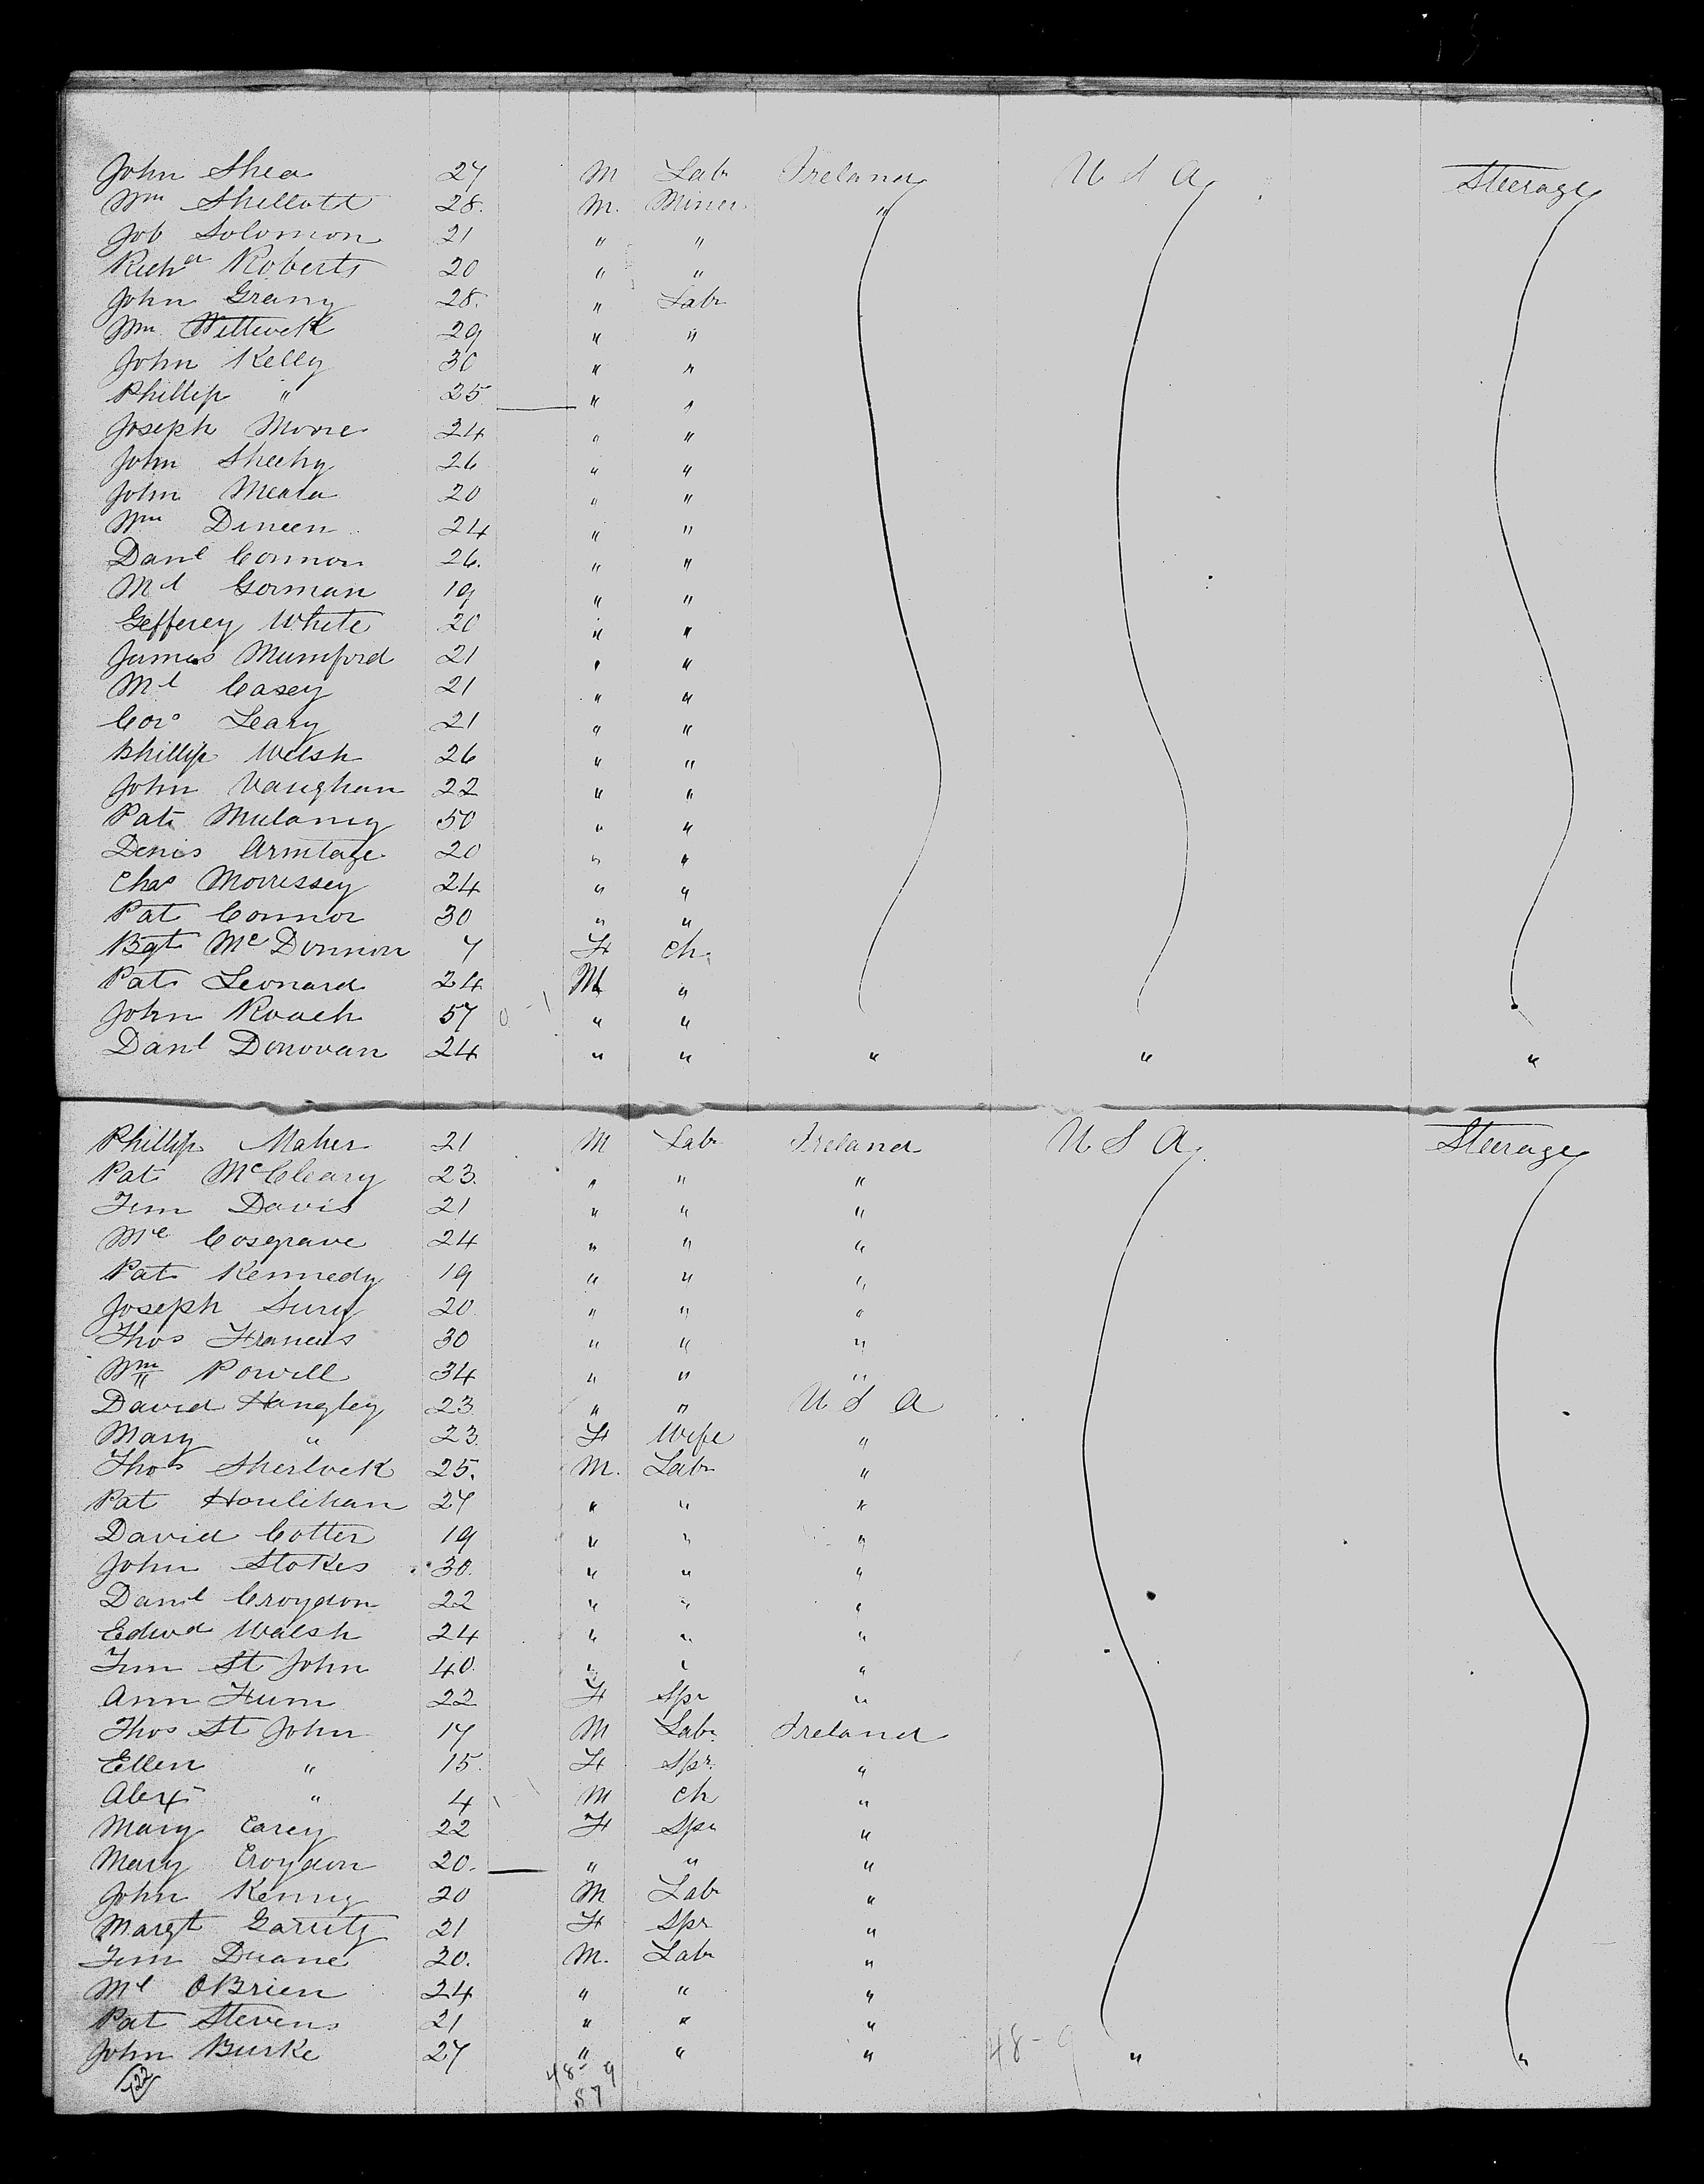 John Shea 27 M Labr Ireland U S A Steerage
Wm Shellott 28. M. Miner "
Job Solomon 21 " "
Richd Roberts 20 " "
John Grany 28. " Labr
Wm 29 " "
John Kelly 30 " "
Phillip " 25 " "
Joseph Moore 24 " "
John Sheehy 26 " "
John Meara 20 " "
Wm Dineen 24 " "
Danl Connor 26. " "
Ml Gorman 19 " "
Gefferey White 20 " "
James Mumford 21 " "
Ml Casey 21 " "
Cors Leary 21 " "
Phillip Welsh 26 " "
John Vaughan 22 " "
Pat Mulany 50 " "
Denis Armitage 20 " "
Chas Morrissey 24 " "
Pat Connor 30 " "
Bgt McDonnon 7 F ch.
Pat Leonard 24 M "
John Roach 57 " "
Danl Donovan 24 " " " " "
Phillip Maher 21 M Labr Ireland U S A Steerage
Pat McCleary 23. " " "
Jim Davis 21 " " "
Ml Cosgrave 24 " " "
Pat Kennedy 19 " " "
Joseph 20 " " "
Thos Francis 30 " " "
Wm Powell 34 " " "
David Hangley 23 " " U S A
Mary " 23. F Wife "
Thos Sherlock 25. M. Labr "
Pat Houlihan 27 " " "
David Cotter 19 " " "
John Stokes 30. " " "
Danl Croydon 22 " " "
Edwd Walsh 24 " " "
Jim St John 40. " " "
Ann 22 F Spr "
Thos St John 17 M Labr Ireland
Ellen " 15. F Spr. "
Alex " 4 M ch "
Mary Carey 22 F Spr "
Mary Croydon 20. " " "
John Kenny 20 M Labr "
Margt Garrity 21 F Spr "
Jim Duane 20. M. Labr "
Ml OBrien 24 " " "
Pat Stevens 21 " " "
John Burke 27 " " " 48-9 " "
122 48-9
57